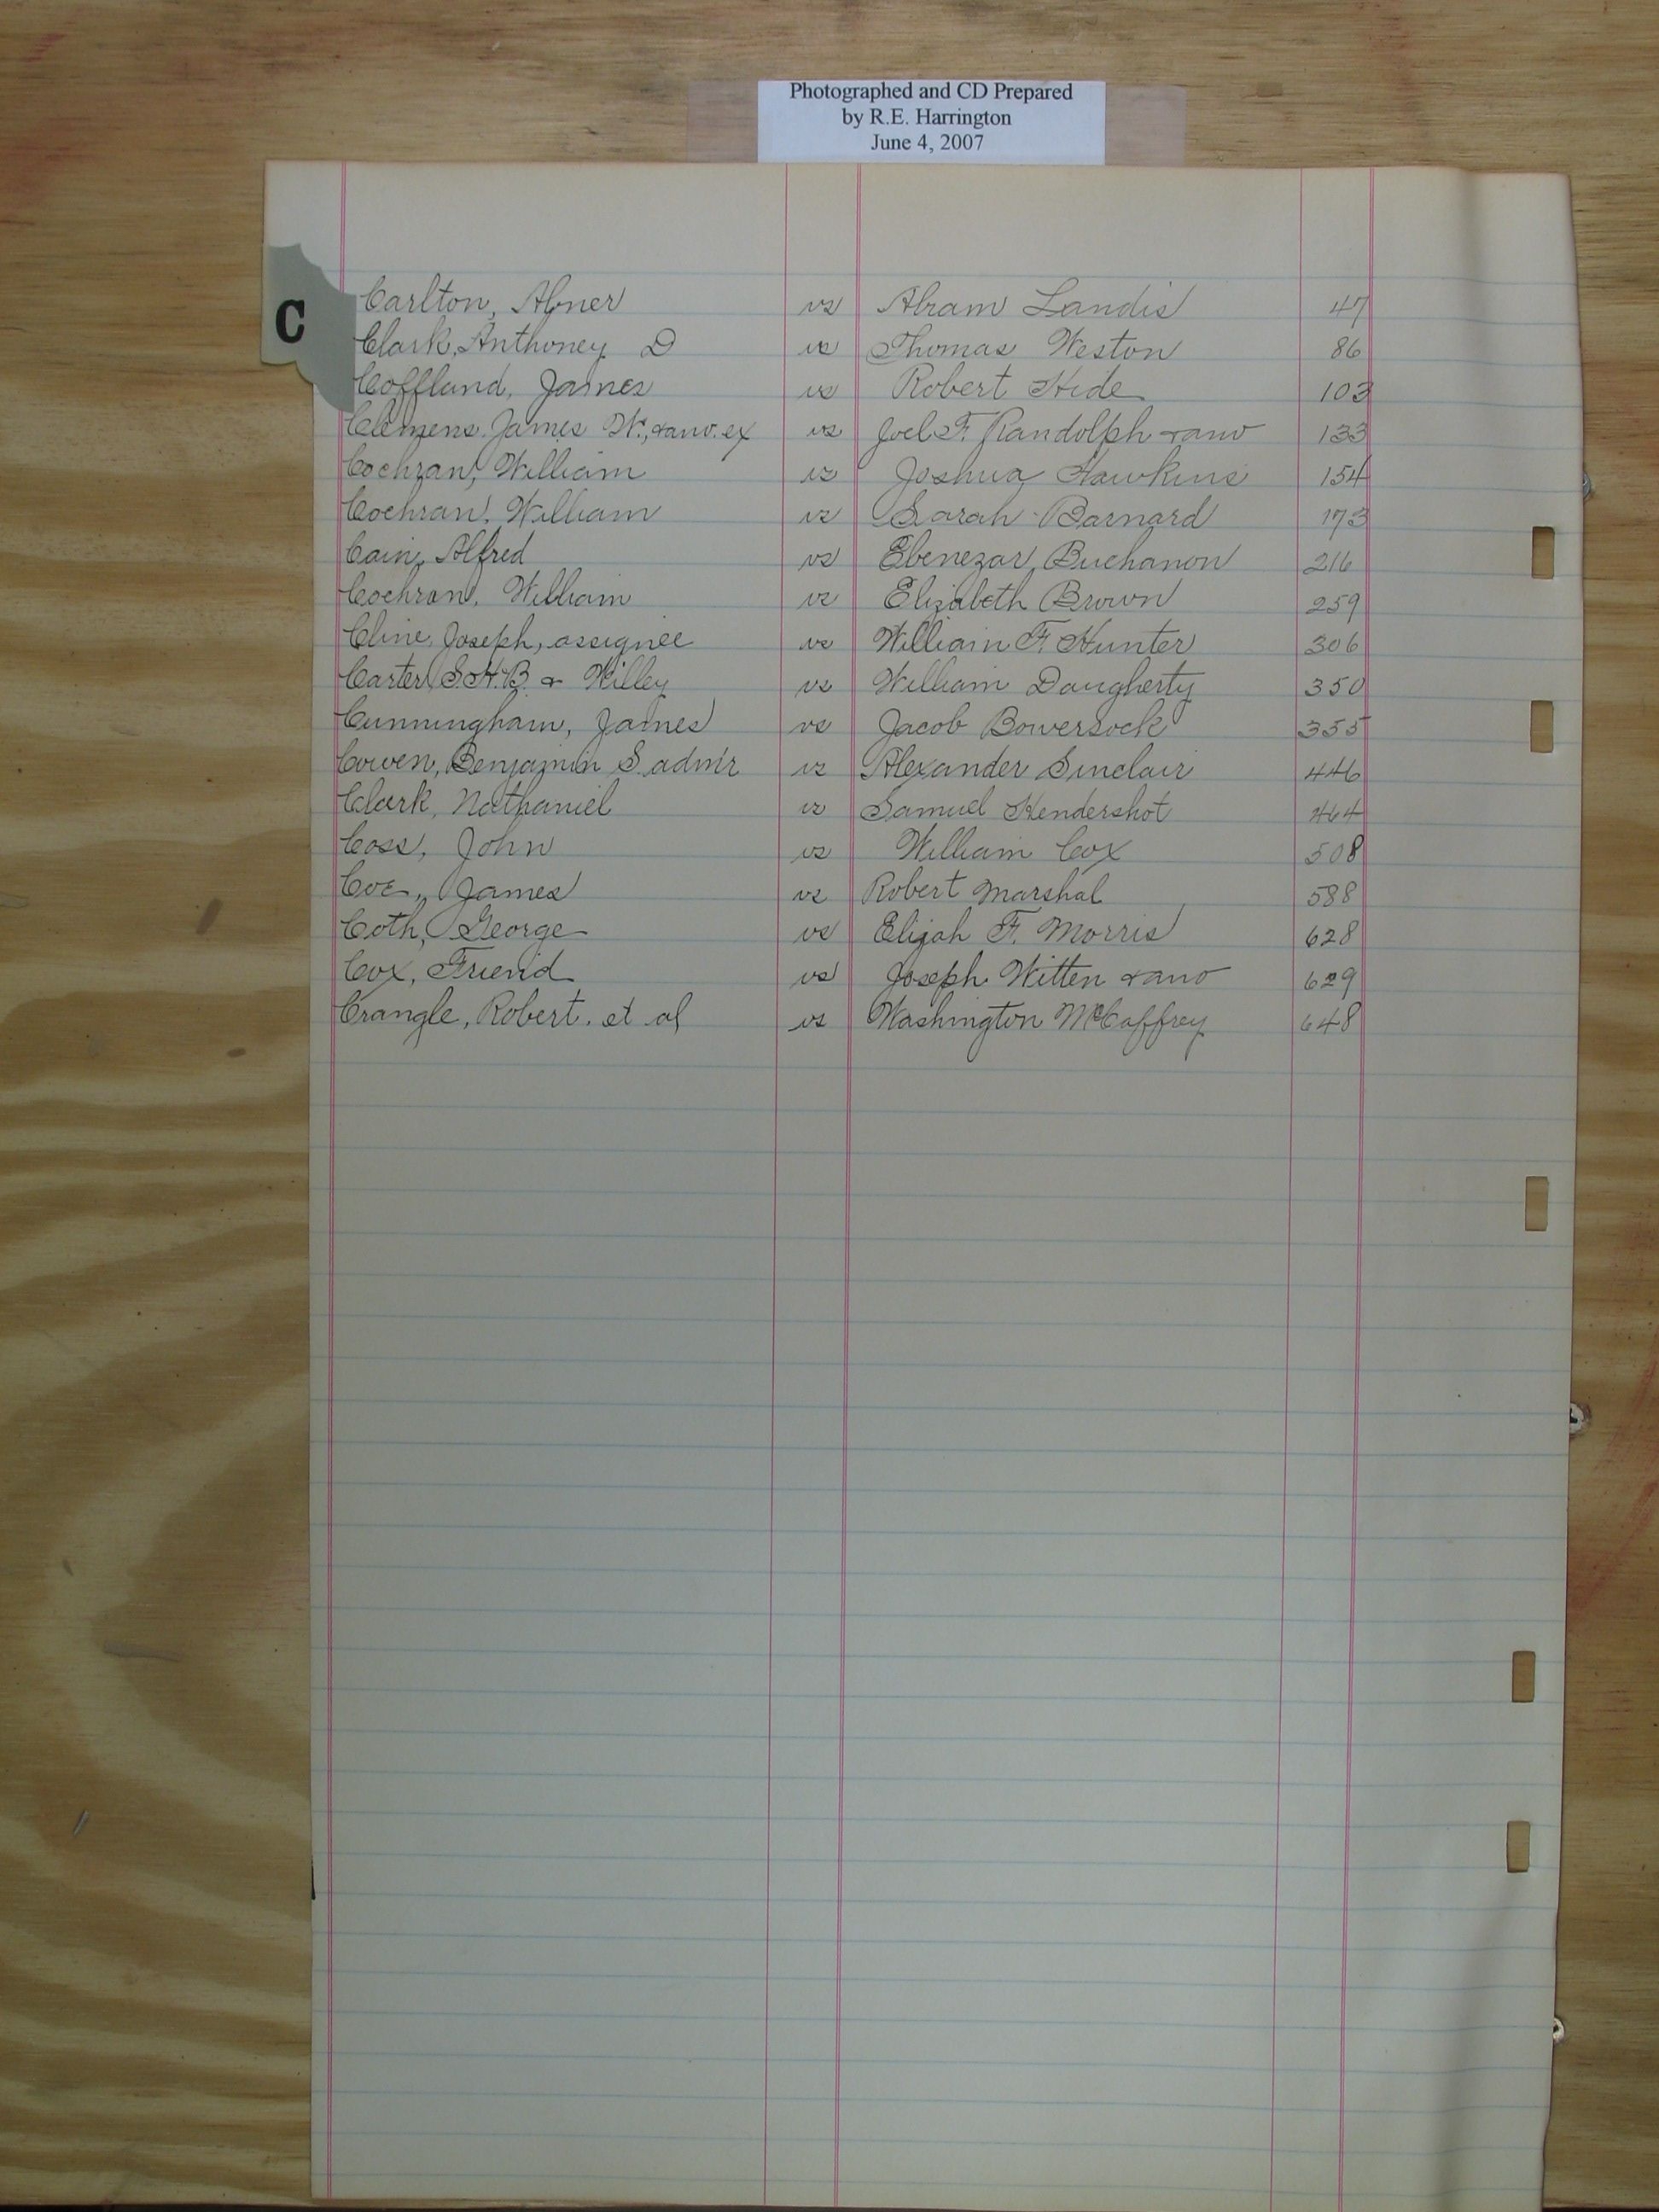 Photographed and CD Prepared
by R.E. Harrington
June 4, 2007
C
Carlton, Abner vs Abram Landis 47
Clark, Anthoney D vs Thomas Weston 86
Coffland, James vs Robert Hide 103
Clemens, James W., & ano. ex vs Joel F. Randolph & ano 133
Cochran, William vs Joshua Hawkins 154
Cochran, William vs Sarah Barnard 173
Cain, Alfred vs Ebenezar Buchanon 216
Cochran, William vs Elizabeth Brown 259
Cline, Joseph, assignee vs William F. Hunter 306
Carter, S.H.B. & Willey vs William Daugherty 350
Cunningham, James vs Jacob Bowersock 355
Cowen, Benjamin S. adm'r vs Alexander Sinclair 446
Clark, Nathaniel vs Samuel Hendershot 464
Coss, John vs William Cox 508
Coe, James vs Robert Marshal 588
Coth, George vs Elijah F. Morris 628
Cox, Friend vs Joseph Witten & ano 629
Crangle, Robert. et al vs Washington McCaffrey 648